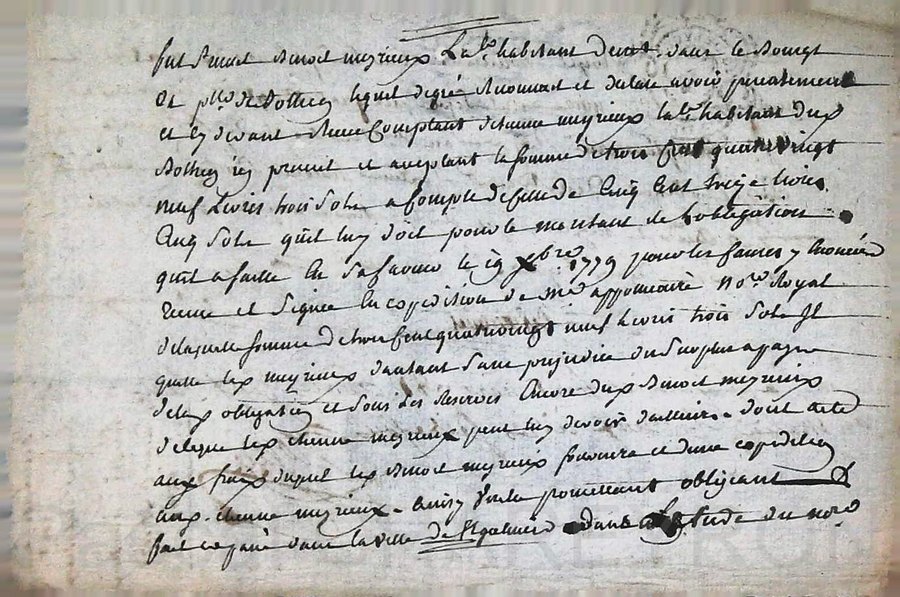 fut Benoit meyrieux lab.r habitant dans le Bourg
et p.sse de lequel de gré Reconnait et declare avoir presentement
et cy devant Receu Comptant d'etienne meyrieux lab.r habitant dud
icy present et acceptant la somme de trois Cent quatre vingt
neuf Livres trois Sols a Compte de Celle de Cinq Cent treize livres
Cinq Sols qu'il luy doit pour le montant de l'obligation
qu'il a faitte En Sa faveur le 19 xbre 1779 pour les Causes y Enoncées
Receue et Signée En expedition de me no.re Royal
de laquelle somme de trois Cent quatre vingt neuf Livres trois Sols Il
quitte led meyrieux d'autant Sans prejudice du Surplus a payer
de lad obligation et Sous les Reserves Encore dud Benoit meyrieux
de ce que led etienne meyrieux peut luy devoir d'ailleurs. dont acte
aux fraix duquel led Benoit meyrieux fournira et d'une expedition
aud. etienne meyrieux. ainsy promettant obligeant &
fait et passé dans la ville de St galmier dans l'Etude du no.re